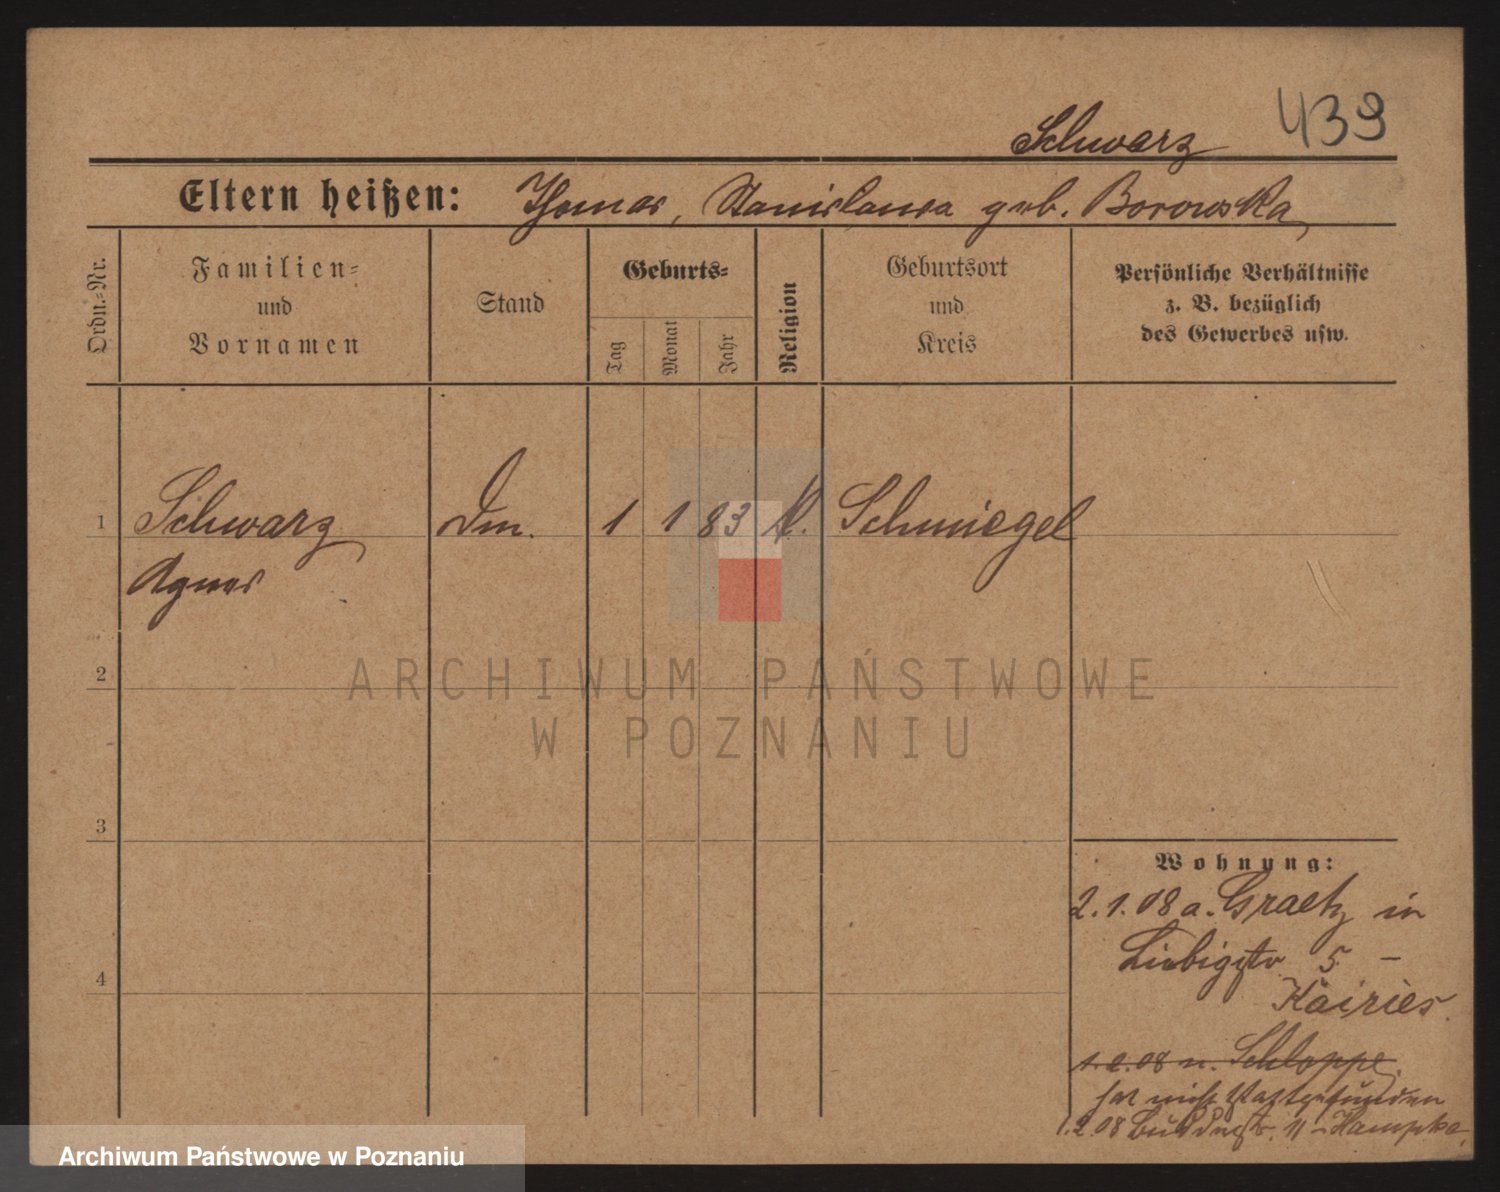 439
Schwarz
Eltern heißen: Thomas, Stanislawa geb. Borowska
Ordn.-Nr.
Familien-
und
Vornamen
Stand
Geburts-
Tag
Monat
Jahr
Religion
Geburtsort
und
Kreis
Persönliche Verhältnisse
z. B. bezüglich
des Gewerbes usw.
1 Schwarz Dm. 1 1 83 k. Schmiegel
Agnes
2
ARCHIWUM PAŃSTWOWE
W POZNANIU
3
Wohnung:
2.1.08 a. Graetz in
Liebigstr 5 -
Kairies.
4
1.2.08 n. Schloppe.
hat nicht stattgefunden
1.2.08 11 - Hampke.
Archiwum Państwowe w Poznaniu